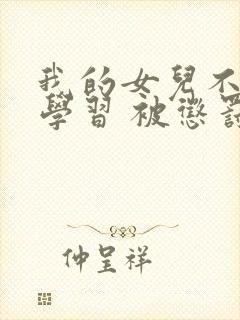 我的女兒不
學習 被懲罰
仲呈祥